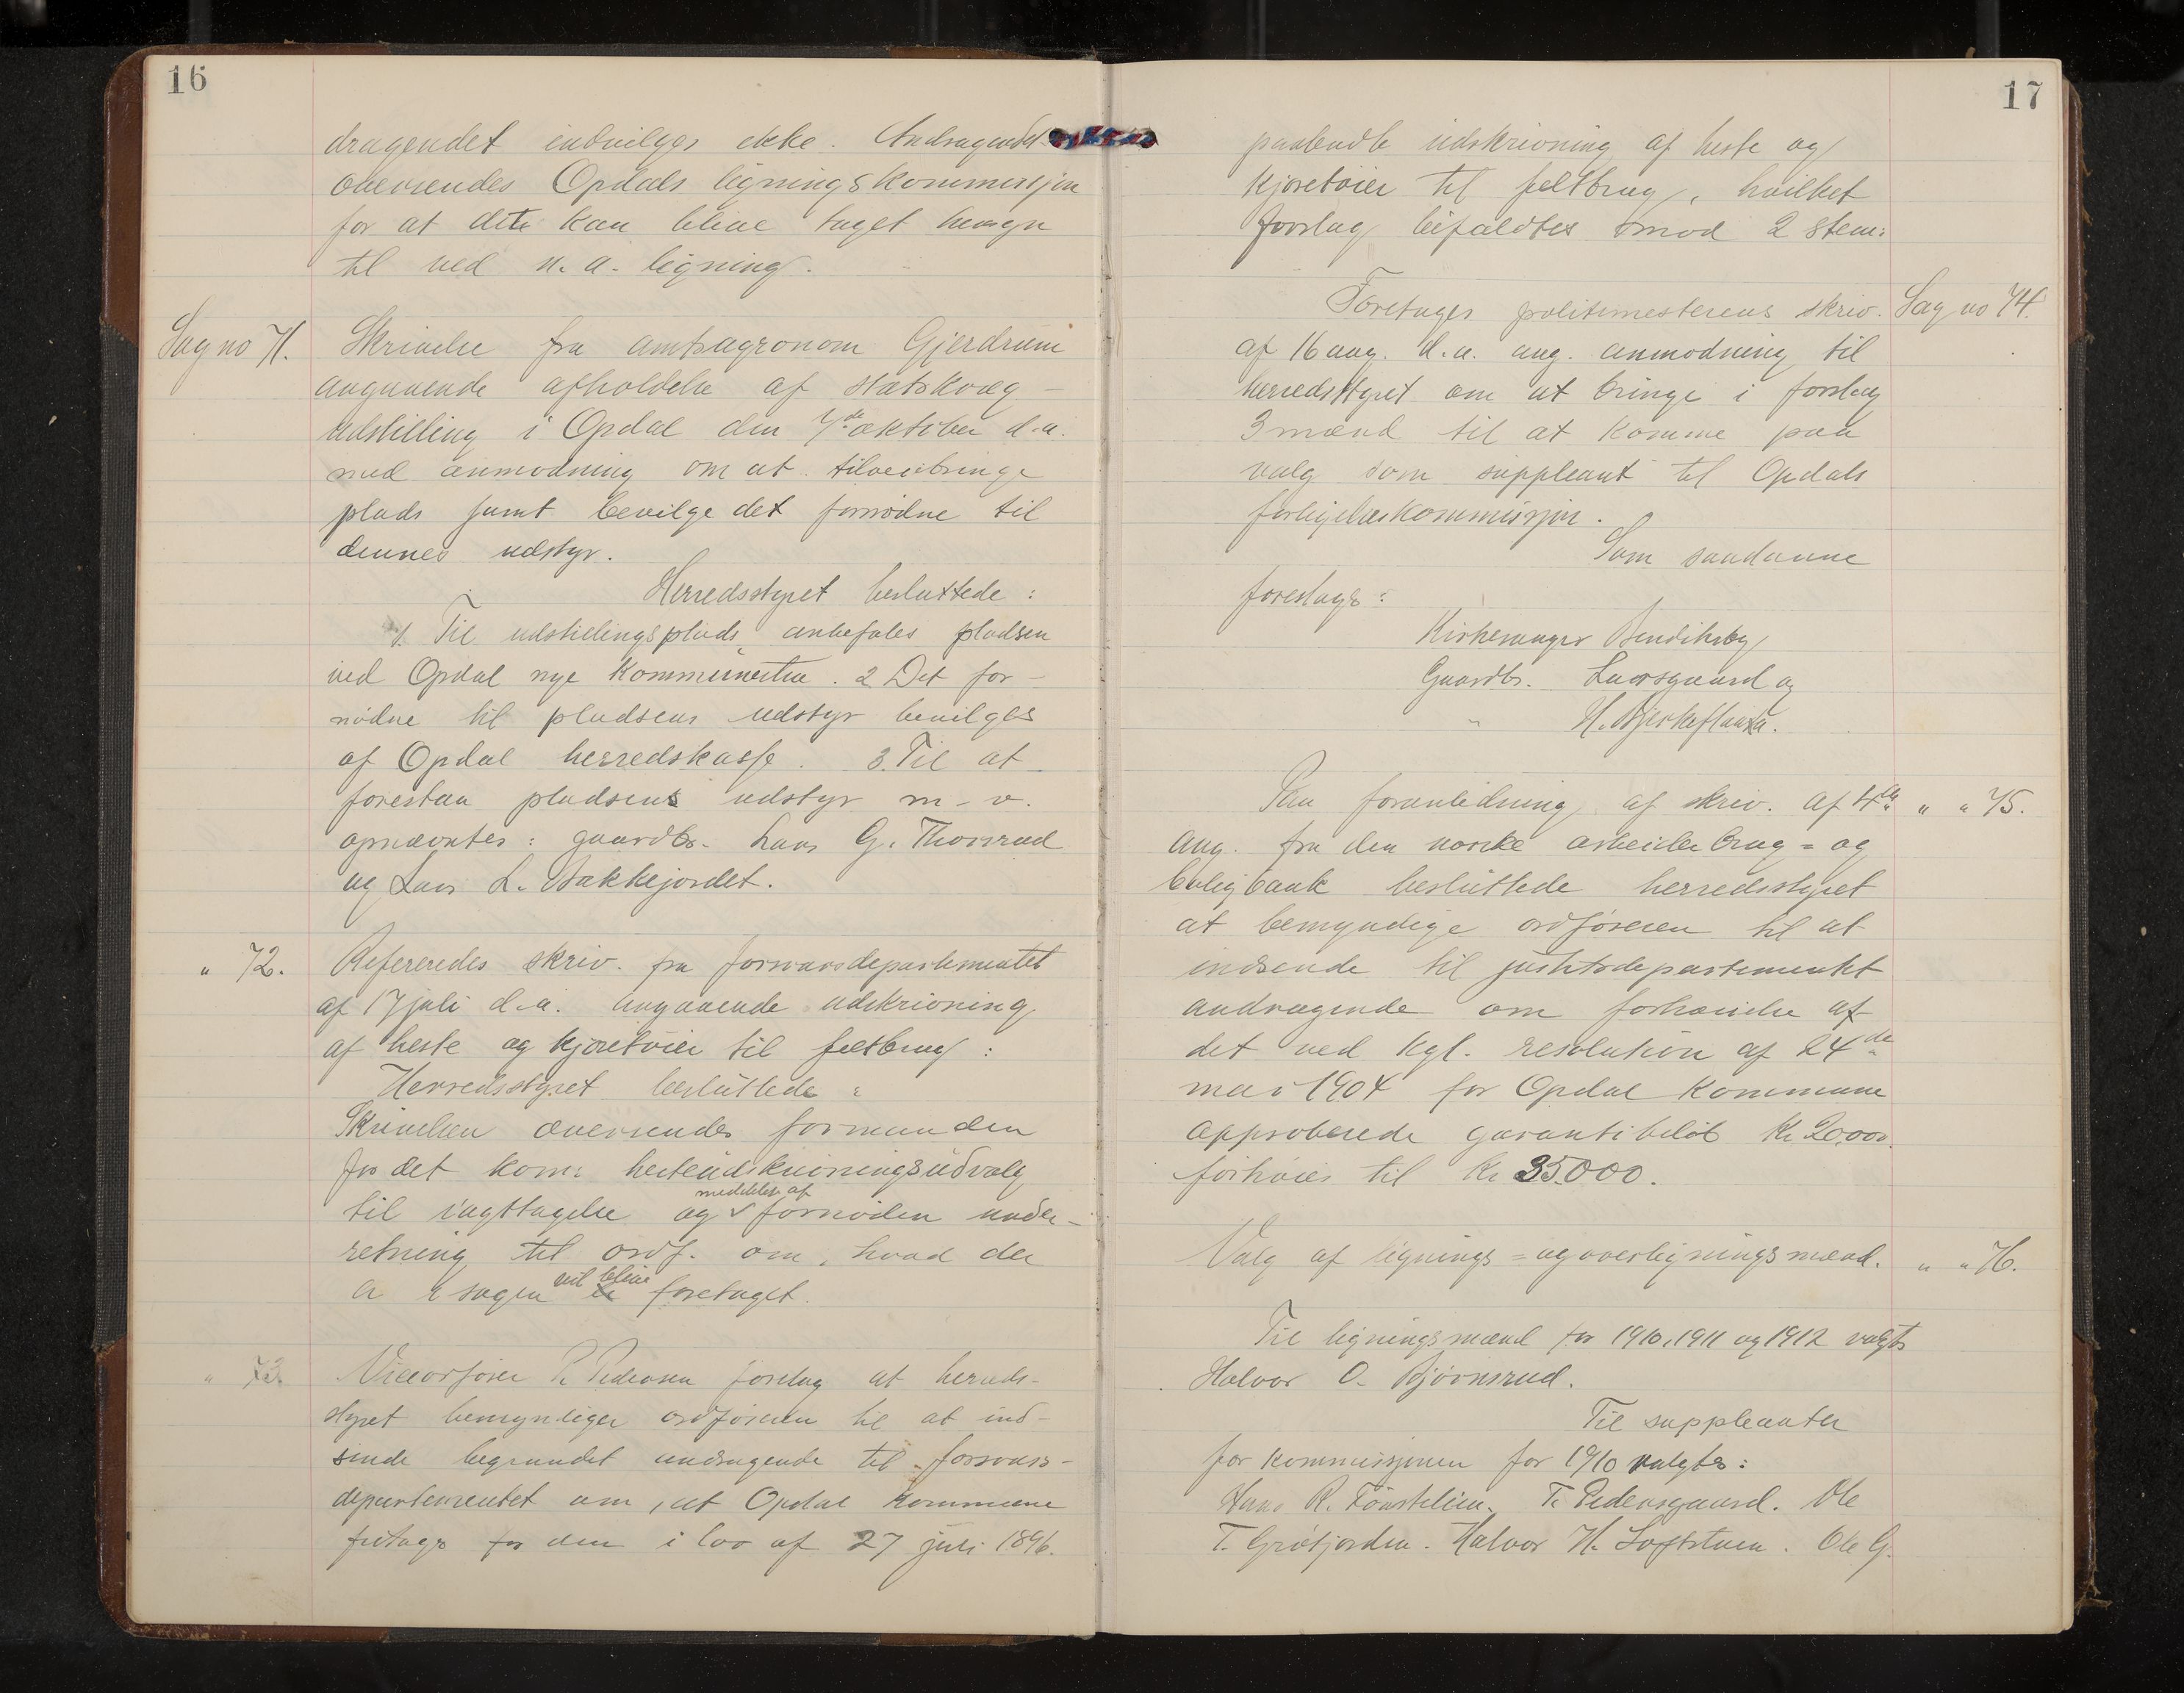 16
dragendet indvilges ikke. Andragendet
oversendes Opdals ligningskommissjon
for at dette kan blive taget hensyn
til ved n. a. ligning.
Sag no 71. Skrivelse fra amtsagronom Gjerdrum
angaaende afholdelse af statskvæg-
udstilling i Opdal den 7de oktober d.a.
med anmodning om at tilveiebringe
plads samt bevilge det fornødne til
dennes udstyr.
Herredsstyret besluttede:
1. Til udstillingsplads anbefales pladsen
ved Opdal nye kommunestue. 2 Det for-
nødne til pladsens udstyr bevilges
af Opdal herredskasse. 3. Til at
forestaa pladsens udstyr m-v.
opnævntes: gaardbr. Lars G. Thorsrud
og Lars L. Bakkejordet.
" 72. Refereredes skriv. fra forsvarsdepartementet
af 17 juli d.a. angaaende udskrivning
af heste og kjøretøier til feltbrug:
Herredsstyret besluttede:
Skrivelsen oversendes formanden
for det kom: hesteudskrivningsudvalg
til iagttagelse og meddelelse af fornøden under-
retning til ordf. om, hvad der
i sagen vil blive foretaget.
" 73. Viceordfører P. Pedersen foreslog at herreds-
styret bemyndiger ordføreren til at ind-
sende begrundet andragende til forsvars-
departementet om, at Opdal kommune
fritages for den i lov af 27 juli 1896.
17
paabudte udskrivning af heste og
kjøretøier til feltbrug, hvilket
forslag bifaldtes imod 2 stem:
Foretages politimesterens skriv. Sag no 74.
af 16 aug. d.a. ang. anmodning til
herredsstyret om at bringe i forslag
3 mænd til at komme paa
valg som suppleant til Opdals
forligelseskommissjon.
Som saadanne
foreslages:
Kirkesanger Bendiksby
Gaardbr. Laarsgaard og
" H. Bjerkeflaata.
Paa foranledning af skriv. af 4de " " 75.
aug. fra den norske arbeiderbrug= og
boligbank besluttede herredsstyret
at bemyndige ordføreren til at
indsende til justitsdepartementet
andragende om forhøielse af
det ved kgl. resolution af 24de
mai 1904 for Opdal kommune
approberede garantibeløb Kr 20.000.
forhøies til Kr 35.000.
Valg af lignings= og overligningsmænd. " " 76.
Til ligningsmænd for 1910, 1911 og 1912 valgtes
Halvor O. Bjørnsrud.
Til suppleanter
for kommissjonen for 1910 valgtes:
Hans R. Tønstelien. T. Pedersgaard. Ole
T. Grøtjorden. Halvor H. Loftstuen. Ole G.